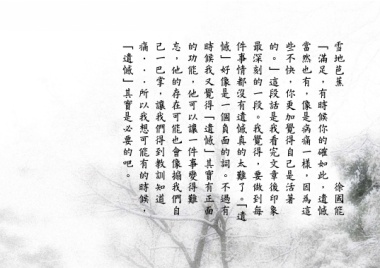 雪地芭蕉　　　　　徐國能
「滿足，有時候你的確如此，遺憾
當然也有，像是病痛一樣，因為這
些不快，你更加覺得自己是活著
的。」這段話是我看完文章後印象
最深刻的一段。我覺得，要做到每
件事情都沒有遺憾真的太難了。「遺
憾」好像是一個負面的詞。不過有
時候我又覺得「遺憾」其實有正面
的功能，他可以讓一件事變得難
忘，他的存在可能也會像搧我們自
己一巴掌，讓我們得到教訓知道
痛．．．所以我想可能有的時候，
「遺憾」其實是必要的吧。